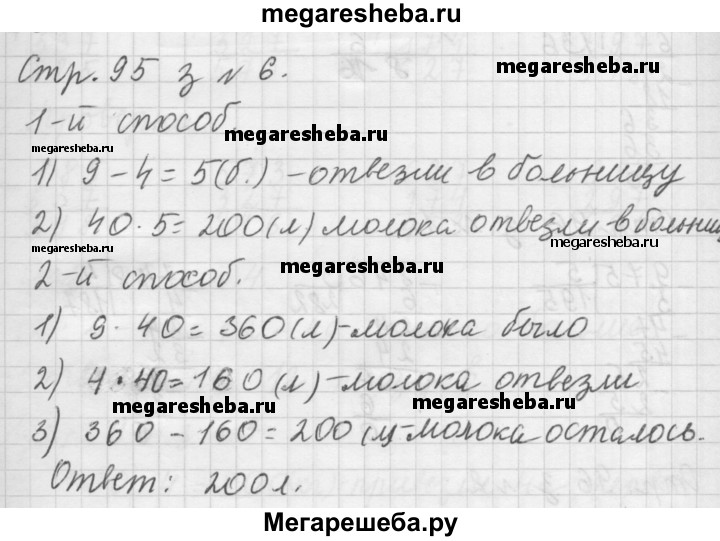 megaresheba.ru
Стр. 95 з № 6.
megaresheba.ru
1-й способ.
megaresheba.ru
megaresheba.ru
1) 9 - 4 = 5(б.) - отвезли в больницу
2) 40 · 5 = 200(л) молока отвезли в больниц
megaresheba.ru
megaresheba.ru
2-й способ.
megaresheba.ru
1) 9 · 40 = 360(л) - молока было
2) 4 · 40 = 160(л) - молока отвезли
megaresheba.ru
megaresheba.ru
3) 360 - 160 = 200(л) - молока осталось.
Ответ: 200л.
Мегарешеба.ру